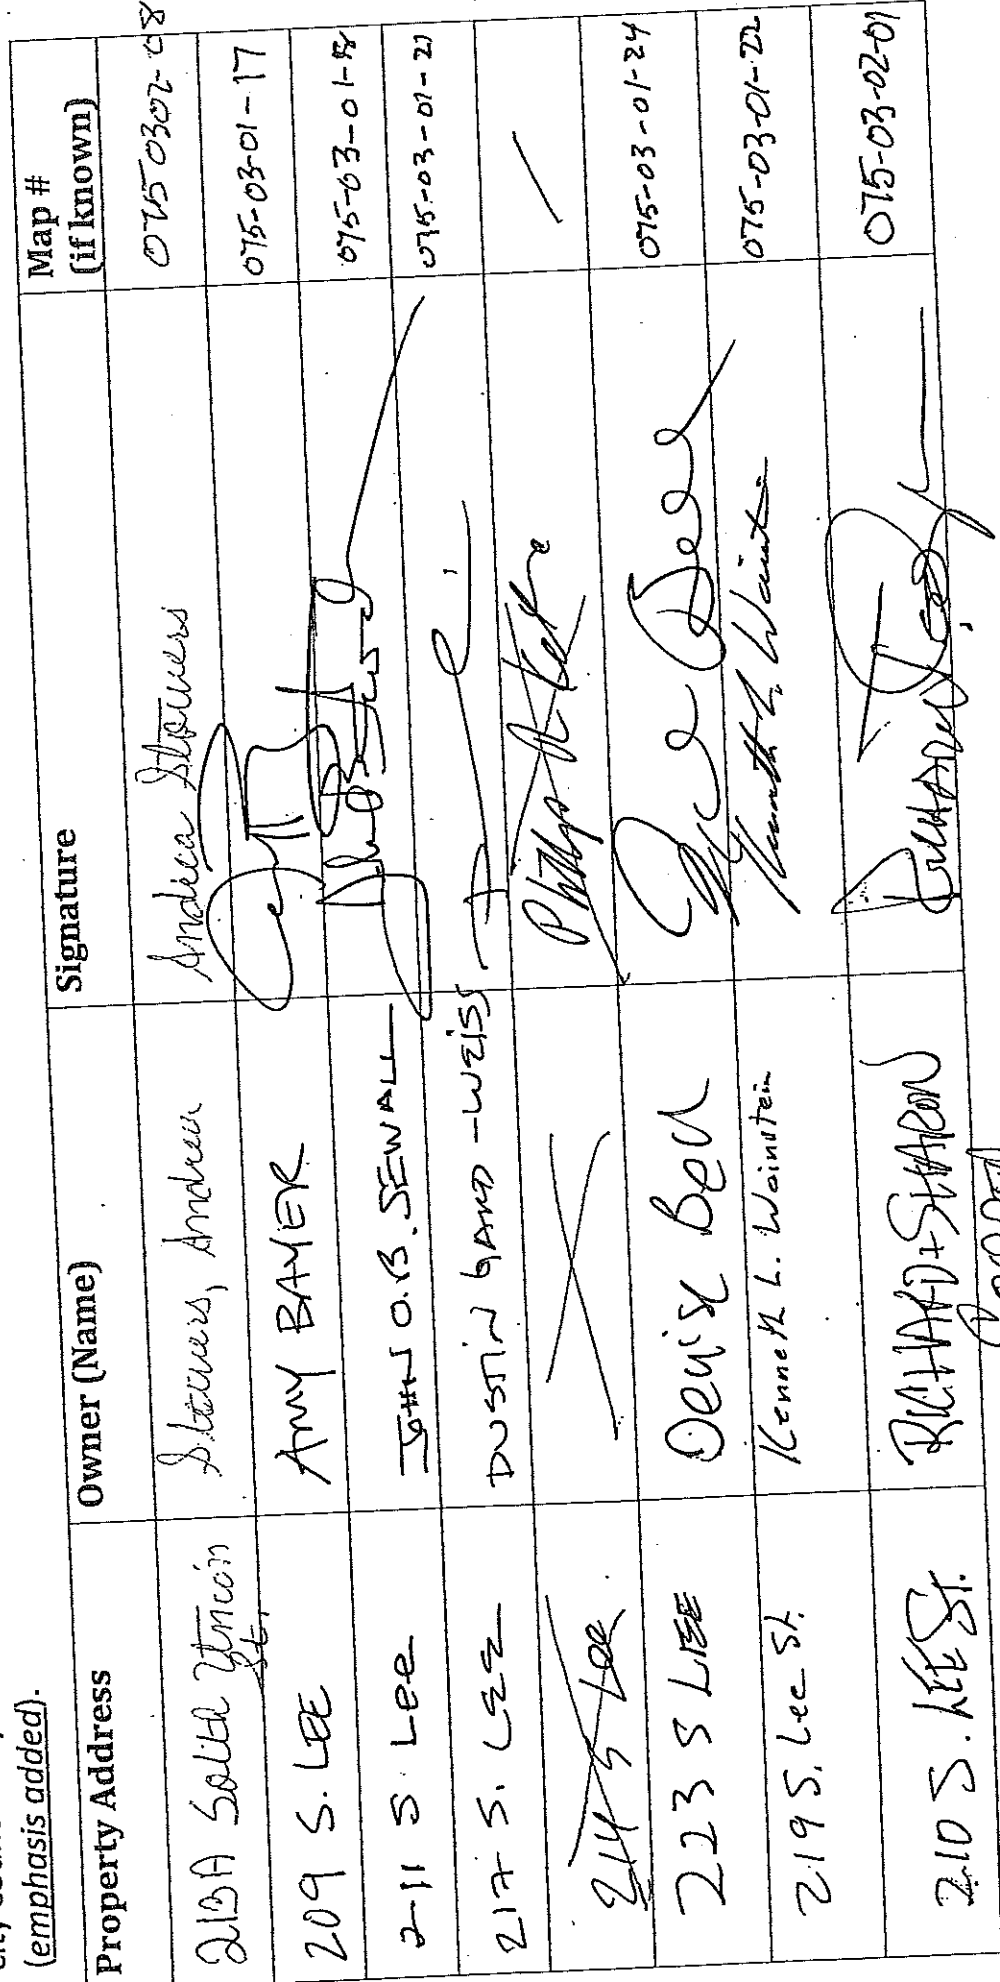 (emphasis added).
Property Address Owner (Name) Signature Map # (if known)
213A South Union St. Stowers, Andrea Andrea Stowers 075 0302-08
209 S. LEE AMY BAYER 075-03-01-17
211 S. Lee JOHN O.B. SEWALL 075-03-01-18
217 S. LEE DUSTIN GARD-WEISS 075-03-01-21
214 S Lee Phillip A.
223 S LEE Denise Bell 075-03-01-24
219 S. Lee St. Kenneth L. Wainstein Kenneth L. Wainstein 075-03-01-22
210 S. LEE St. RICHARD + SHARON 075-03-02-01